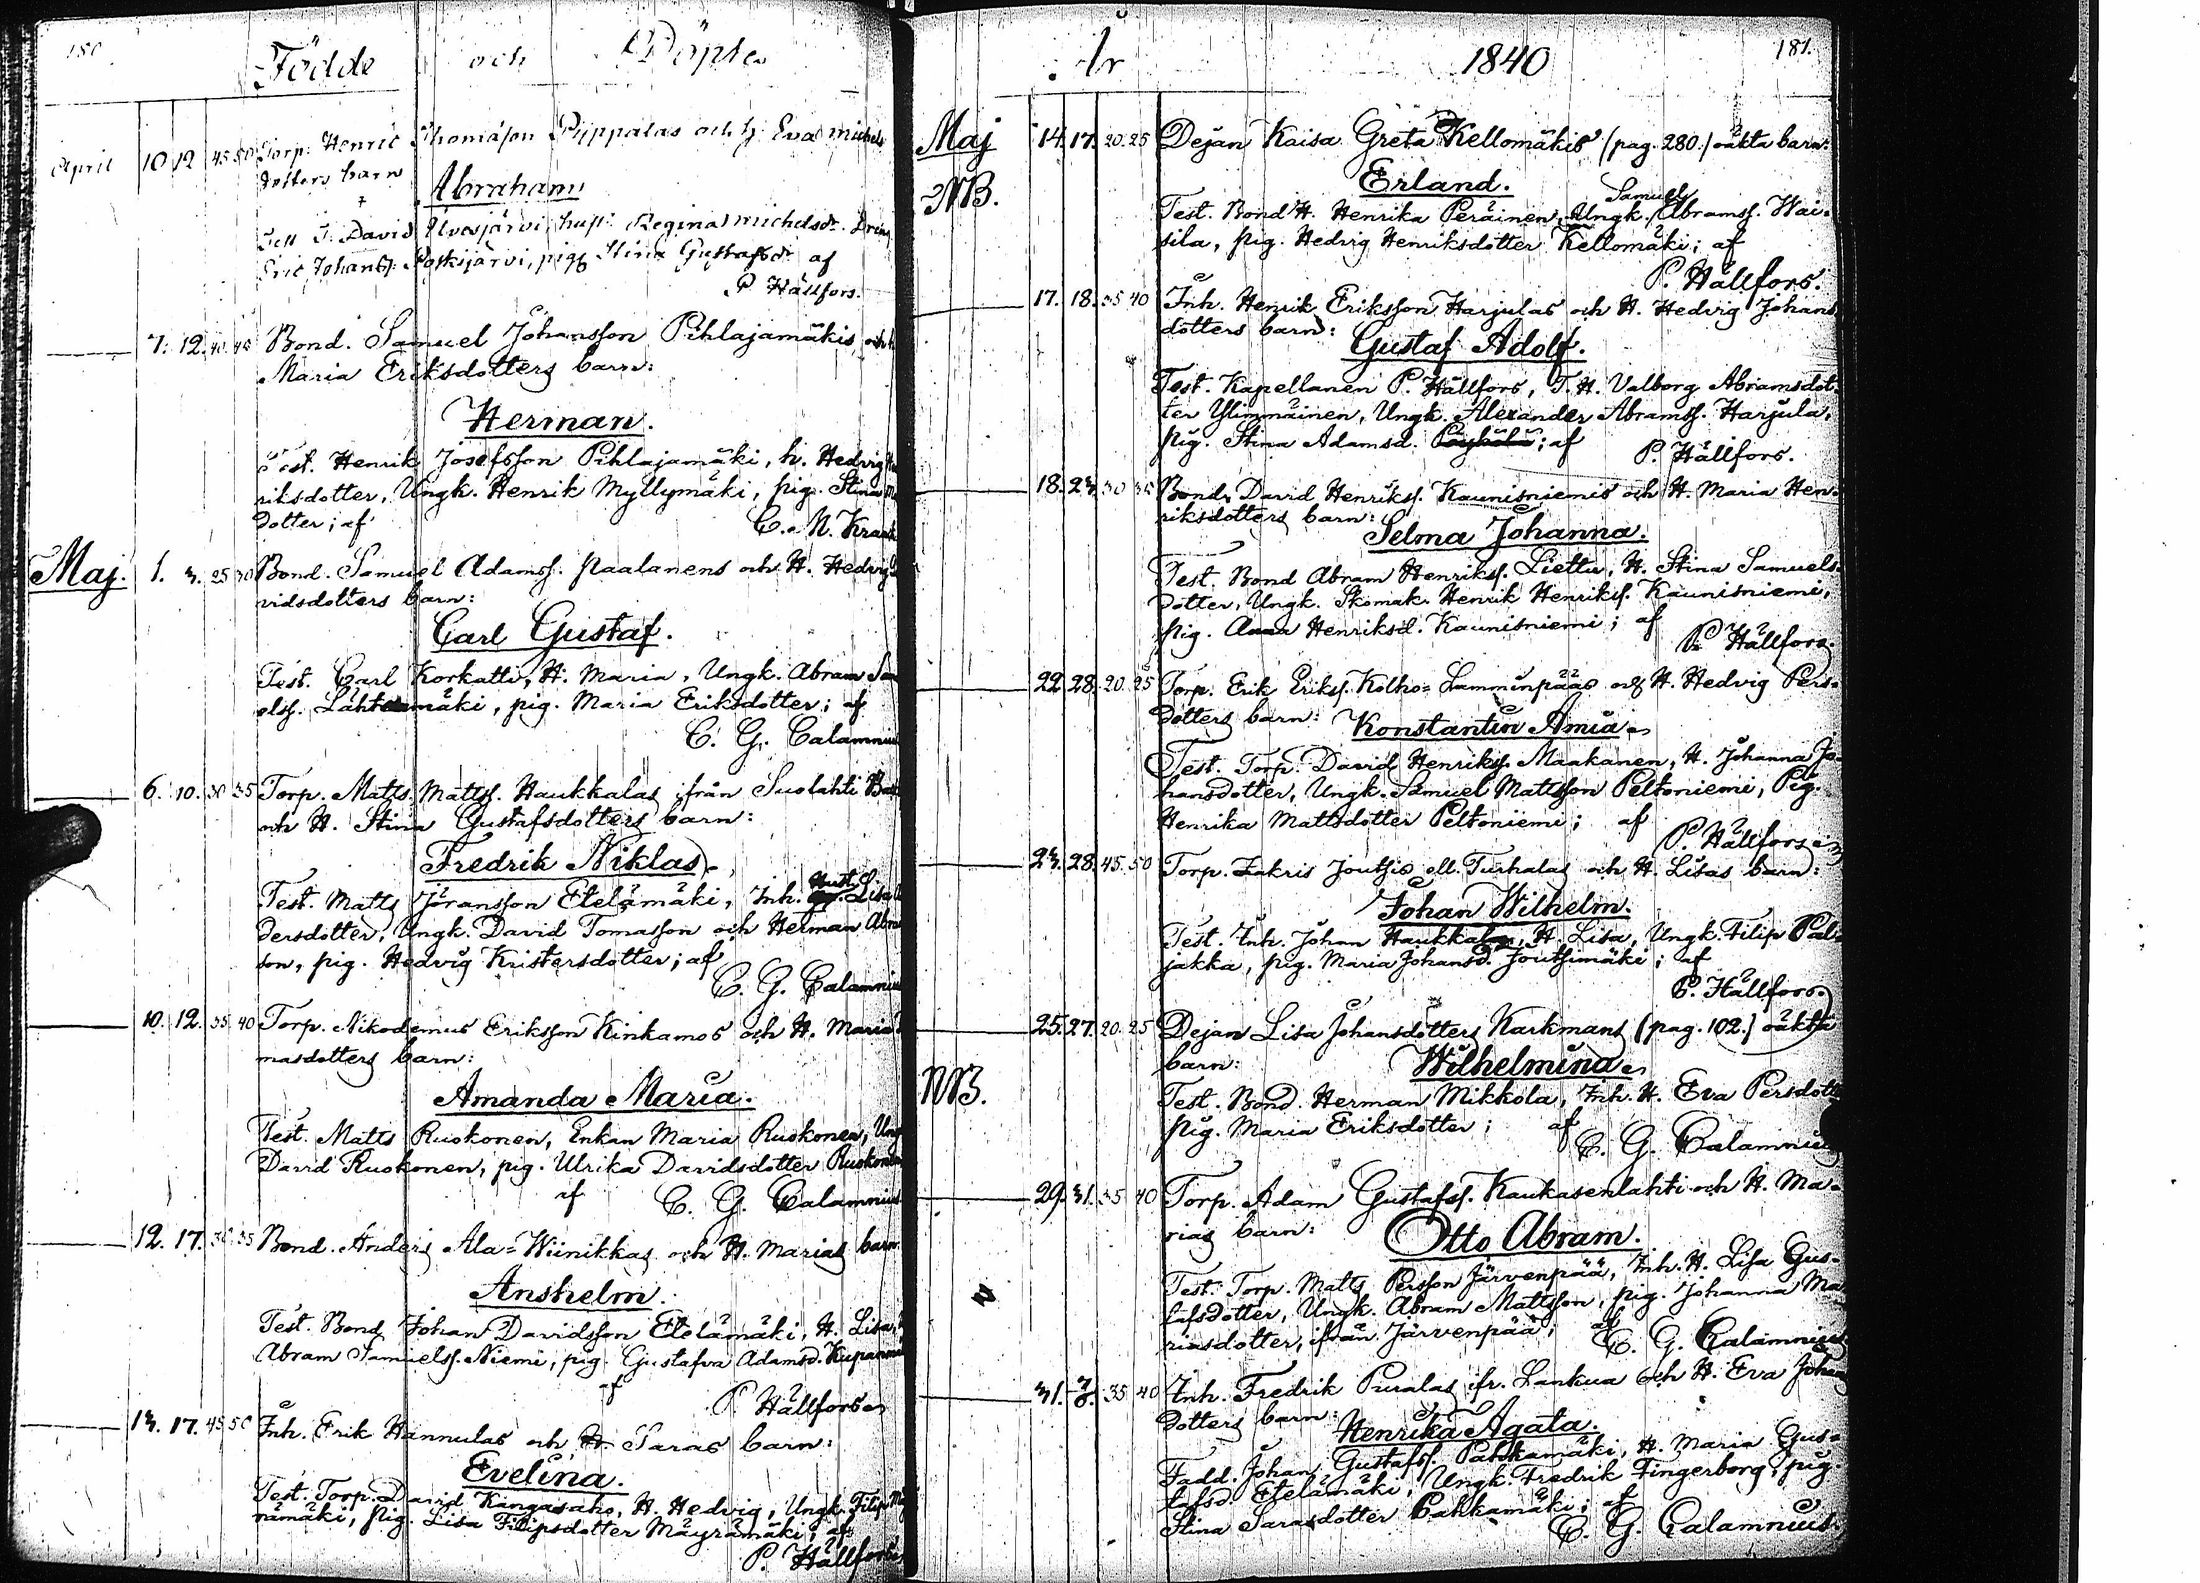 180
Födde och Döpte
April 10 12 45 50 Torp. Henric Thomasson Pyppalas och h. Eva Michels
dotters barn
Abraham
Test T. David Ulvesjärvi, hust. Regina Michelsdr. Dreng
Eric Johanss. Poskijärvi, pig. Stina Gustafsdr af
P Hällfors.
7. 12. 40 45 Bond. Samuel Johansson Pihlajamäkis och h.
Maria Eriksdotters barn:
Herman.
Test. Henrik Josefsson Pihlajamäki, h. Hedvig
riksdotter, Ungk. Henrik Myllymäki, pig. Stina
dotter; af
C. M. Krank
Maj. 1. 3. 25 30 Bond. Samuel Adamss. Paalanens och H. Hedvig
vidsdotters barn:
Carl Gustaf.
Test. Carl Korkatti, H. Maria, Ungk. Abram
elss. mäki, pig. Maria Eriksdotter; af
C. G. Calamnius
6. 10. 30 35 Torp. Matts Mattss. Haukkalas från Suolahti
och H. Stina Gustafsdotters barn:
Fredrik Niklas
Test. Matts Jöransson Etelämäki, Inh. Hust. Lisa
dersdotter, Ungk. David Tomasson och Herman
son, pig. Hedvig Kristersdotter; af
C. G. Calamnius
10. 12. 35 40 Torp. Nikodemus Eriksson Kinkamos och H. Maria
masdotters barn:
Amanda Maria.
Test. Matts Ruokonen, Enkan Maria Ruokonen, Ung
David Ruokonen, pig. Ulrika Davidsdotter Ruokonen
af C. G. Calamnius
12. 17. 30 35 Bond. Anders Ala-Wiinikkas och H. Marias barn
Anshelm.
Test. Bond Johan Davidsson Etelämäki, H. Lisa,
Abram Samuelss. Niemi, pig. Gustafva Adamsd.
af
P. Hällfors
13. 17. 45 50 Inh. Erik Hannulas och H. Saras barn:
Evelina.
Test. Torp. David Kangasaho, H. Hedvig, Ungk. Filip
rämäki, Pig. Lisa Filipsdotter Mäyrämäki; af
P. Hällfors
År 1840 181.
Maj 14. 17. 20. 25 Dejan Kaisa Greta Kellomäkis (pag. 280.) oäkta barn:
NB. Erland.
Samuel
Test. Bond H. Henrika Peräinen, Ungk. Abramss. Wai-
sila, pig. Hedvig Henriksdotter Kellomäki; af
P. Hällfors.
17. 18. 35 40 Inh. Henrik Eriksson Harjulas och H. Hedvig Johans
dotters barn:
Gustaf Adolf.
Test. Kapellanen P. Hällfors, T. H. Valborg Abramsdot-
ter Ylimmäinen, Ungk. Alexander Abramss. Harjula,
pig. Stina Adamsd. ; af
P. Hällfors.
18. 23. 30 35 Bond. David Henrikss. Kaunisniemis och H. Maria Hen-
riksdotters barn:
Selma Johanna.
Test. Bond Abram Henrikss. Liettu, H. Stina Samuels-
dotter, Ungk. Skomak. Henrik Henrikss. Kaunisniemi,
pig. Anna Henriksd. Kaunisniemi; af
P. Hällfors.
22. 28. 20. 25 Torp. Erik Erikss. Kolho-Lamminpääs och H. Hedvig Pers-
dotters barn: Konstantin Amia
Test. Torp. David Henrikss. Maakanen, H. Johanna Jo-
hansdotter, Ungk. Samuel Mattsson Peltoniemi, Pig.
Henrika Mattsdotter Peltoniemi; af
P. Hällfors
23. 28. 45. 50 Torp. Zakris Joutsis ell. Turhalas och H. Lisas barn:
Johan Wilhelm.
Test. Inh. Johan Haukkala, H. Lisa, Ungk. Filip Pal-
jakka, pig. Maria Johansd. Joutsimäki; af
P. Hällfors.
25. 27. 20. 25 Dejan Lisa Johansdotters Karkmans (pag. 102.) oäkta
barn:
Wilhelmina
NB. Test. Bond. Herman Mikkola, Inh. H. Eva Persdott
pig. Maria Eriksdotter; af
C. G. Calamnius
29. 31. 35 40 Torp. Adam Gustafss. Kaukasenlahti och H. Ma-
rias barn:
Otto Abram.
Test. Torp. Matts Persson Järvenpää, Inh. H. Lisa Gus-
tafsdotter, Ungk. Abram Mattsson, pig. Johanna Ma
riasdotter, ifrån Järvenpää; af
C. G. Calamnius
31. 7/6. 35 40 Inh. Fredrik Puralas fr. Lankua och H. Eva Johans
dotters barn:
Henrika Agata.
Fadd. Johan Gustafss. Pahkamäki, H. Maria Gus-
tafsd. Etelämäki, Ungk. Fredrik Fingerborg, pig.
Stina Sarasdotter Pahkamäki; af
C. G. Calamnius.